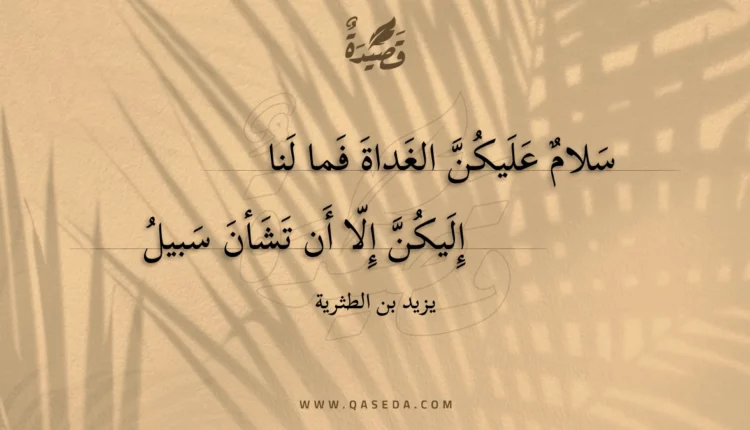 قَصِيْدَةٌ
سَلامٌ عَلَيكُنَّ الغَداةَ فَما لَنا
إِلَيكُنَّ إِلّا أَن تَشَأنَ سَبيلُ
يزيد بن الطثرية
WWW.QASEDA.COM